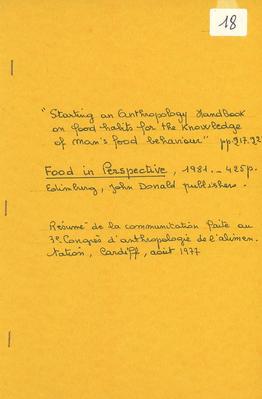 18
"Starting an Anthropology Handbook
on food habits for the Knowledge
of man's food behaviour" pp.217.22
Food in Perspective, 1981._ 425p.
Edimburg, John Donald publishers.
Résumé de la communication faite au
3e Congrès d'anthropologie de l'alimen.
tation, Cardiff, août 1977